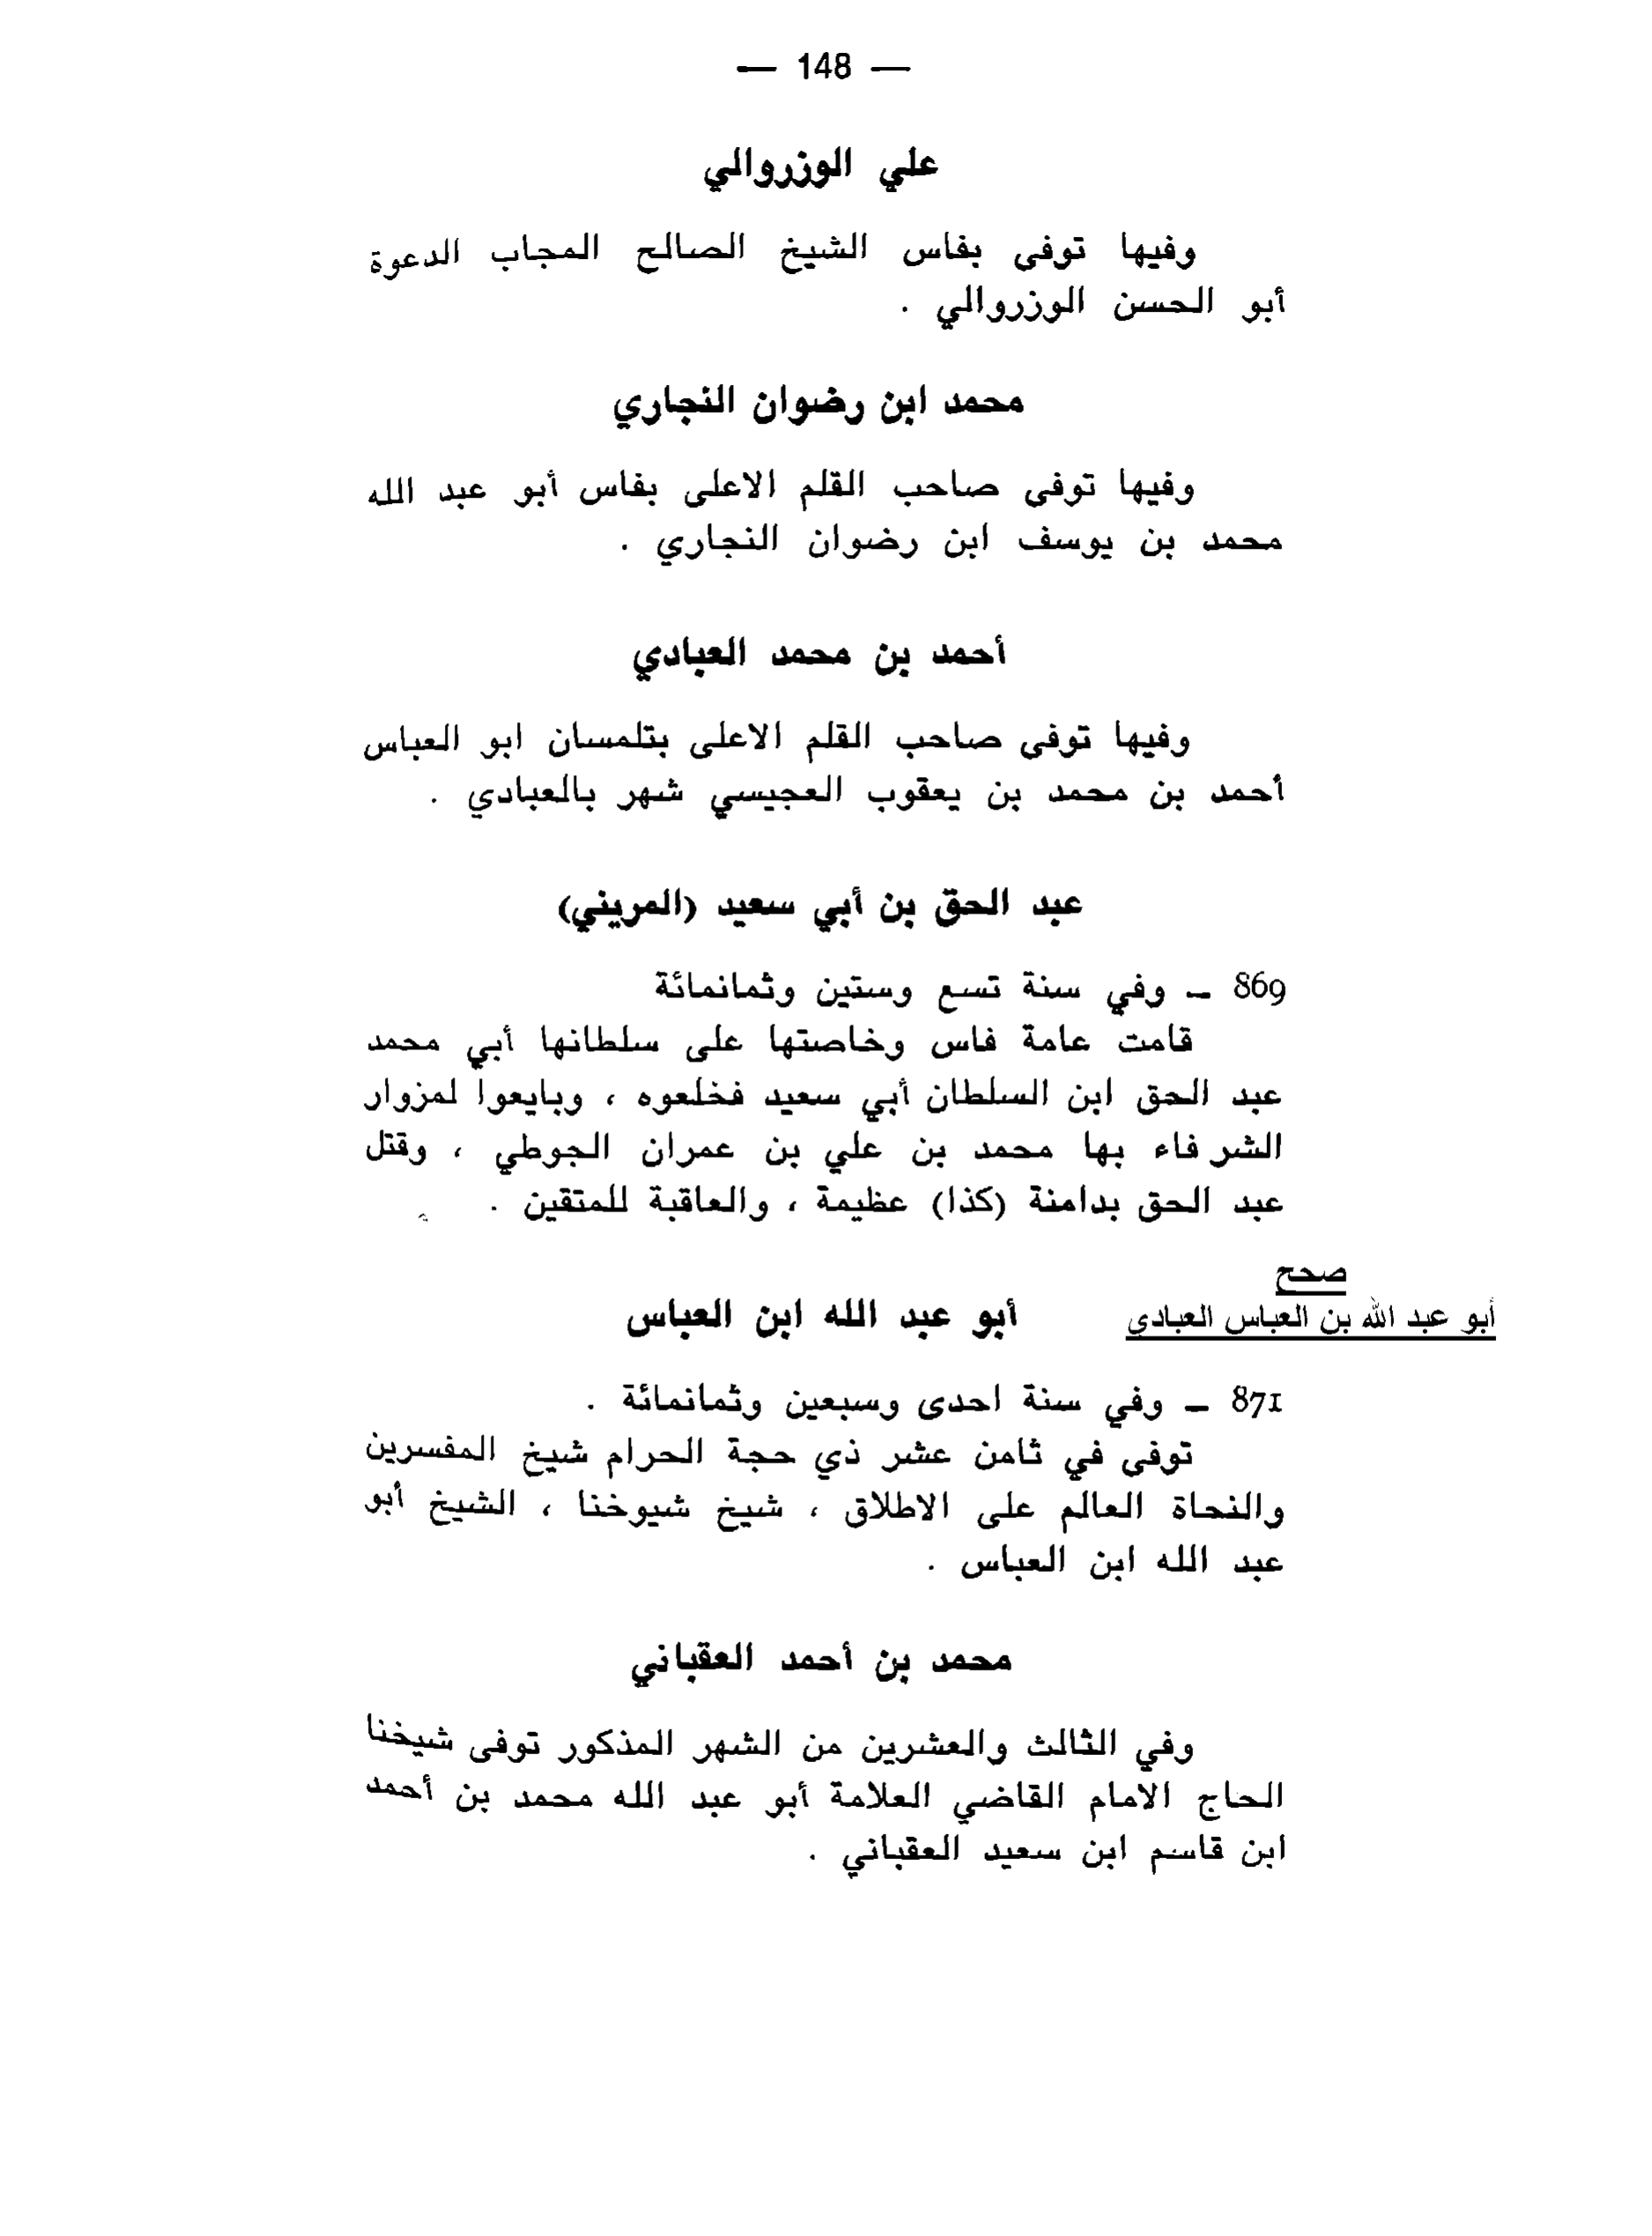 — 148 —
علي الوزروالي
وفيها توفي بفاس الشيخ الصالح المجاب الدعوة
أبو الحسن الوزروالي .
محمد ابن رضوان النجاري
وفيها توفي صاحب القلم الاعلى بفاس أبو عبد الله
محمد بن يوسف ابن رضوان النجاري .
أحمد بن محمد العبادي
وفيها توفي صاحب القلم الاعلى بتلمسان ابو العباس
أحمد بن محمد بن يعقوب العجيسي شهر بالعبادي .
عبد الحق بن أبي سعيد (المريني)
869 – وفي سنة تسع وستين وثمانمائة
قامت عامة فاس وخاصتها على سلطانها أبي محمد
عبد الحق ابن السلطان أبي سعيد فخلعوه ، وبايعوا لمزوار
الشرفاء بها محمد بن علي بن عمران الجوطي ، وقتل
عبد الحق بدامنة (كذا) عظيمة ، والعاقبة للمتقين .
صحح
أبو عبد الله بن العباس العبادي
أبو عبد الله ابن العباس
871 – وفي سنة احدى وسبعين وثمانمائة .
توفي في ثامن عشر ذي حجة الحرام شيخ المفسرين
والنحاة العالم على الاطلاق ، شيخ شيوخنا ، الشيخ أبو
عبد الله ابن العباس .
محمد بن أحمد العقباني
وفي الثالث والعشرين من الشهر المذكور توفى شيخنا
الحاج الامام القاضي العلامة أبو عبد الله محمد بن أحمد
ابن قاسم ابن سعيد العقباني .